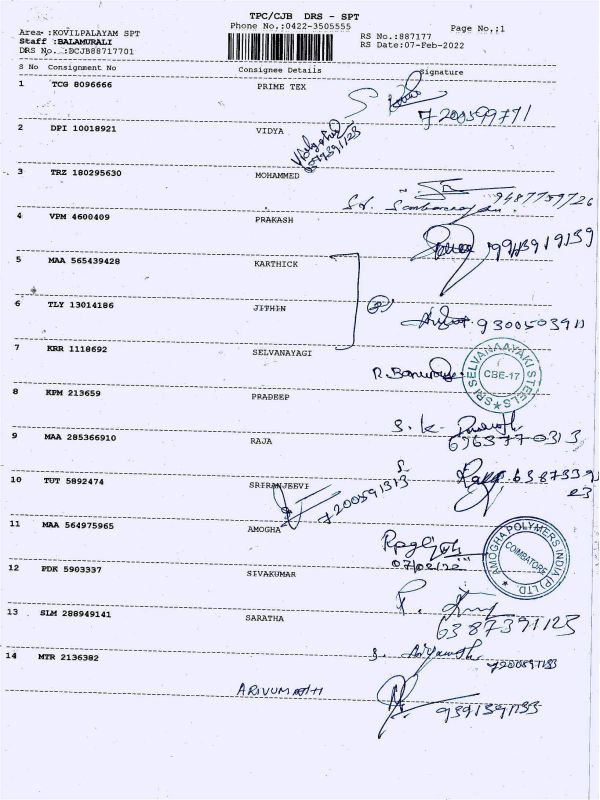 TPC/CJB DRS - SPT
Area- :KOVILPALAYAM SPT Phone No.:0422-3505555 Page No,:1
Staff :BALAMURALI RS No.:887177
DRS No. :DCJB88717701 RS Date:07-Feb-2022
S No Consignment No Consignee Details Signature
1 TCG 8096666 PRIME TEX
7200599771
2 DPI 10018921 VIDYA
3 TRZ 180295630 MOHAMMED
9487759726
4 VPM 4600409 PRAKASH
9943919139
5 MAA 565439428 KARTHICK
6 TLY 13014186 JITHIN
9300503911
7 KRR 1118692 SELVANAYAGI
SRI SELVANAAYAKI STEELS CBE-17
8 KPM 213659 PRADEEP
S. K.
6363770313
9 MAA 285366910 RAJA
10 TUT 5892474 SRIRANJEEVI
7200591313
11 MAA 564975965 AMOGHA
07/02/22
AMOGHA POLYMERS INDIA (P) LTD COIMBATORE
12 PDK 5903337 SIVAKUMAR
13 SLM 288949141 SARATHA
6387391123
14 MTR 2136382
ARIVUMATHI
9391391133